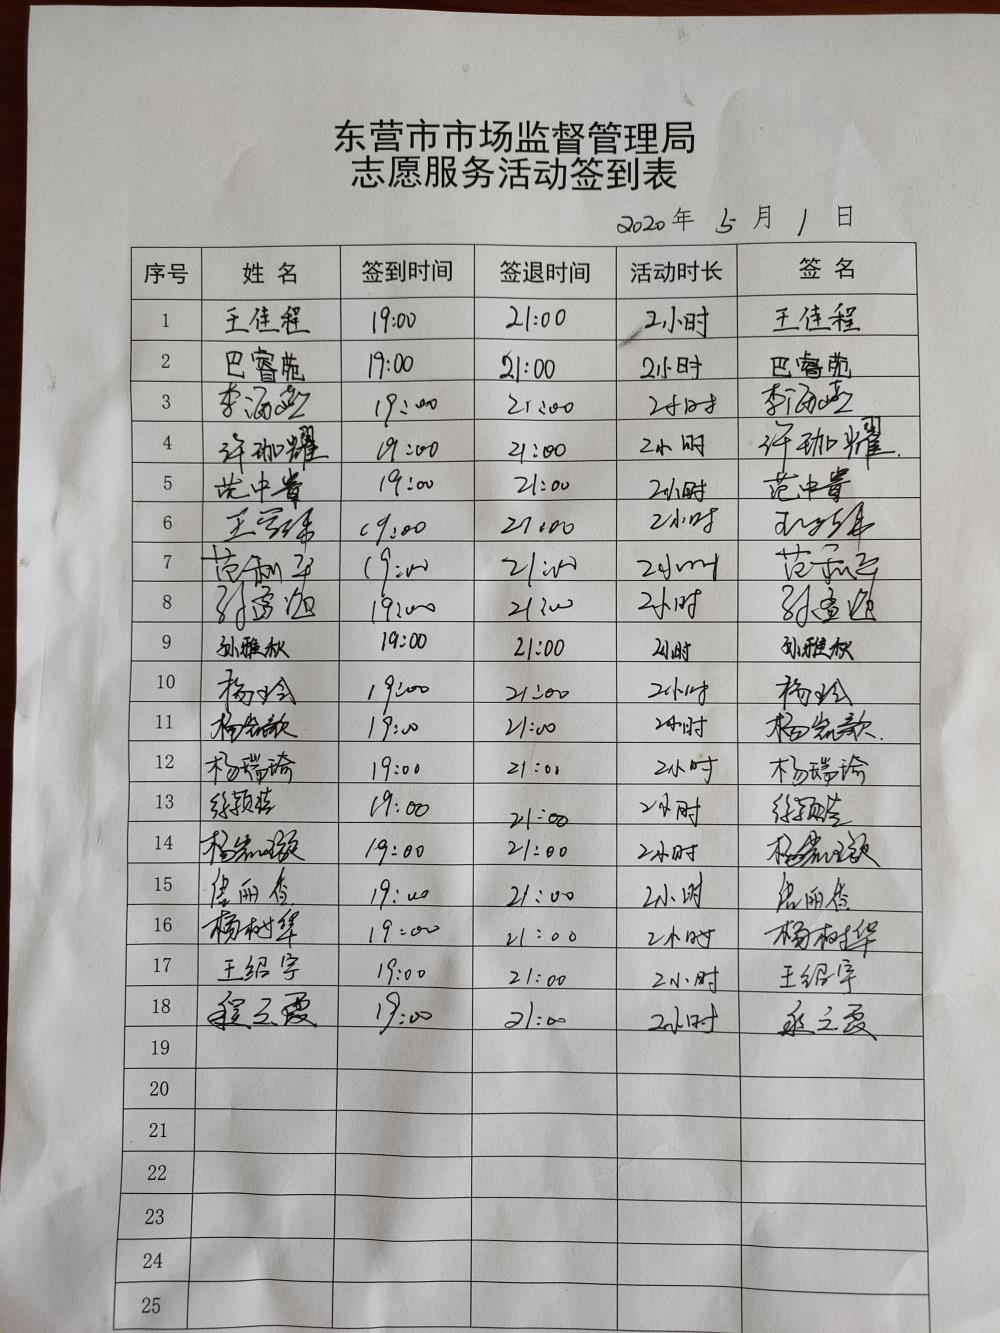 东营市市场监督管理局
志愿服务活动签到表
2020年 5月 1日
序号 姓名 签到时间 签退时间 活动时长 签名
1 王佳程 19:00 21:00 2小时 王佳程
2 巴睿苑 19:00 21:00 2小时 巴睿苑
3 李 19:00 21:00 2小时 李
4 许珈耀 19:00 21:00 2小时 许珈耀.
5 范中贵 19:00 21:00 2小时 范中贵
6 王 19:00 21:00 2小时 王
7 范 19:00 21:00 2小时 范
8 孙 19:00 21:00 2小时 孙
9 孙雅秋 19:00 21:00 2小时 孙雅秋
10 杨玲 19:00 21:00 2小时 杨玲
11 杨 19:00 21:00 2小时 杨
12 杨瑞瑜 19:00 21:00 2小时 杨瑞瑜
13 徐颖 19:00 21:00 2小时 徐颖
14 杨 19:00 21:00 2小时 杨
15 丽香 19:00 21:00 2小时 丽香
16 杨树华 19:00 21:00 2小时 杨树华
17 王绍宇 19:00 21:00 2小时 王绍宇
18 程立霞 19:00 21:00 2小时 程立霞
19
20
21
22
23
24
25